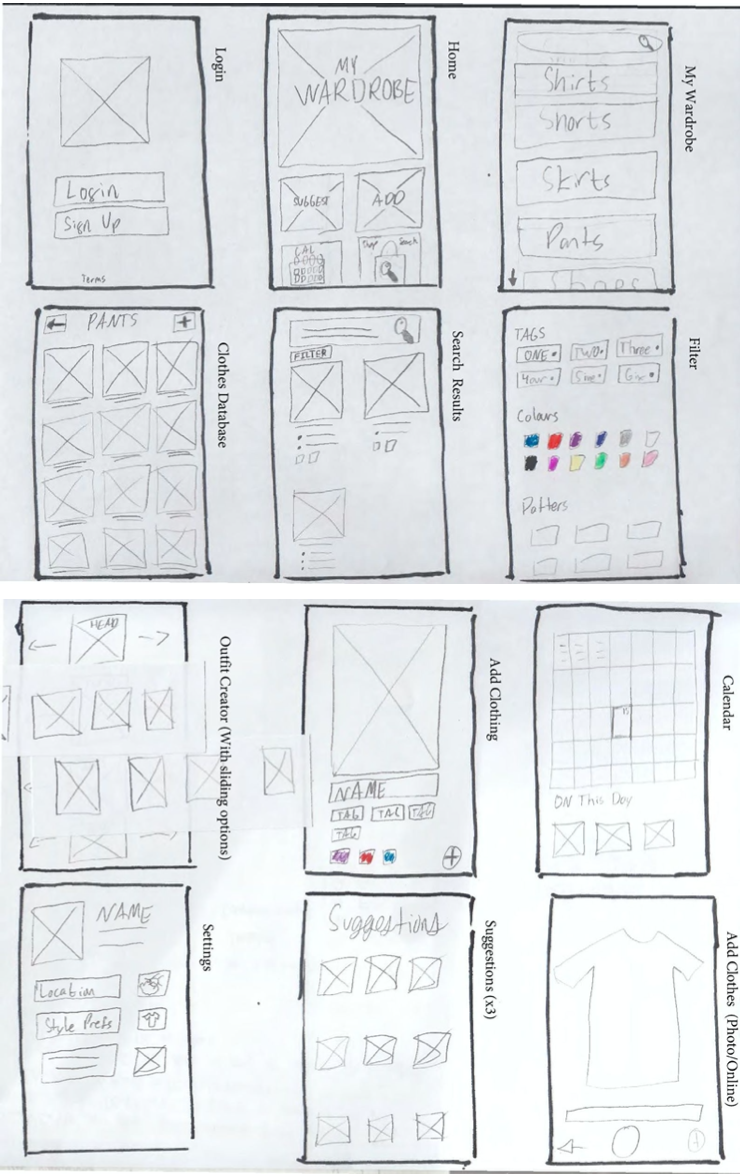 Login
Login
Sign Up
Terms
Home
MY
WARDROBE
SUGGEST
ADD
CAL
Search
My Wardrobe
Shirts
Shorts
Skirts
Pants
Shoes
Clothes Database
PANTS
Search Results
FILTER
Filter
TAGS
ONE
TWO
Three
Colours
Patters
Outfit Creator (With sliding options)
HEAD
Add Clothing
NAME
TAG
TAG
TAG
TAG
Calendar
ON This Day
Settings
NAME
Location
Style Prefs
Suggestions (x3)
Suggestions
Add Clothes (Photo/Online)